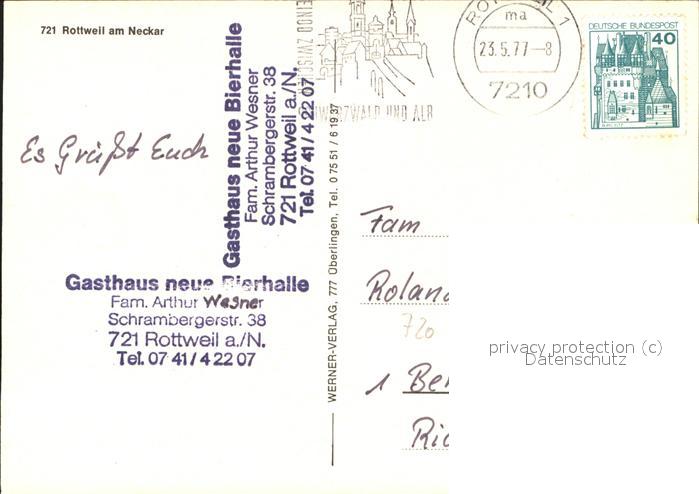 721 Rottweil am Neckar
ma
23.5.77-8
7210
DEUTSCHE BUNDESPOST
40
SCHWARZWALD UND ALB
Es Grüßt Euch
Gasthaus neue Bierhalle
Fam. Arthur Wesner
Schrambergerstr. 38
721 Rottweil a./N.
Tel. 07 41 / 4 22 07
Gasthaus neue Bierhalle
Fam. Arthur Wesner
Schrambergerstr. 38
721 Rottweil a./N.
Tel. 07 41 / 4 22 07
WERNER-VERLAG, 777 Überlingen, Tel. 0 75 51 / 6 19 37
Fam
Roland
720
1 Ber
Ric
privacy protection (c)
Datenschutz